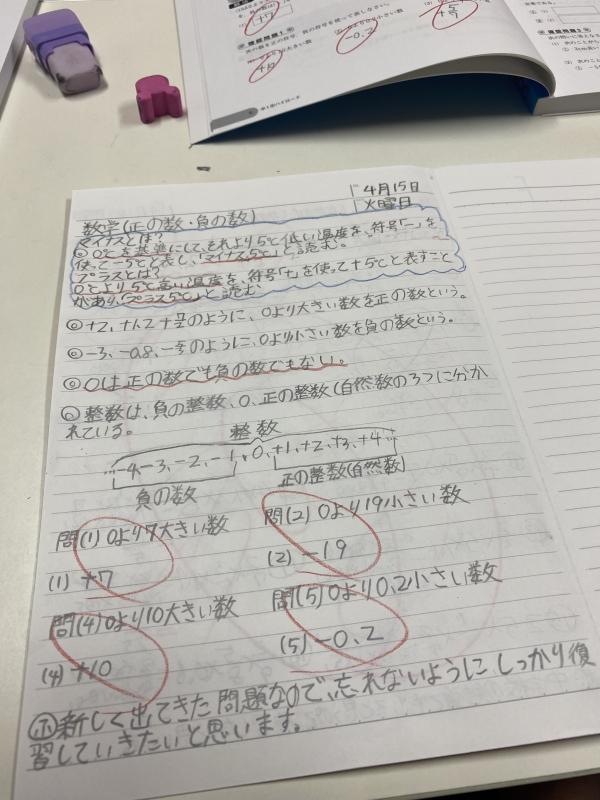 +7
-0.2
+10
第1章ハイローチ
4月15日
火曜日
数学(正の数・負の数)
マイナスとは?
◎0℃を基準にして、それより5℃低い温度を、符号「-」を
使って-5℃と表し、「マイナス5℃」と読む。
プラスとは?
0℃より5℃高い温度を、符号「+」を使って+5℃と表すこと
があり、「プラス5℃」と読む
◎+2、+1.2 のように、0より大きい数を正の数という。
◎-3、-0.8、 のように、0より小さい数を負の数という。
◎0は正の数でも負の数でもない。
◎整数は、負の整数、0、正の整数(自然数の3つに分か
れている。
整数
…-4,-3,-2,-1,0,+1,+2,+3,+4…
負の数
正の整数(自然数)
問(1)0より7大きい数
(1) +7
問(2)0より19小さい数
(2) -19
問(4)0より10大きい数
(4) +10
問(5)0より0.2小さい数
(5) -0.2
㋭新しく出てきた問題なので、忘れないようにしっかり復
習していきたいと思います。